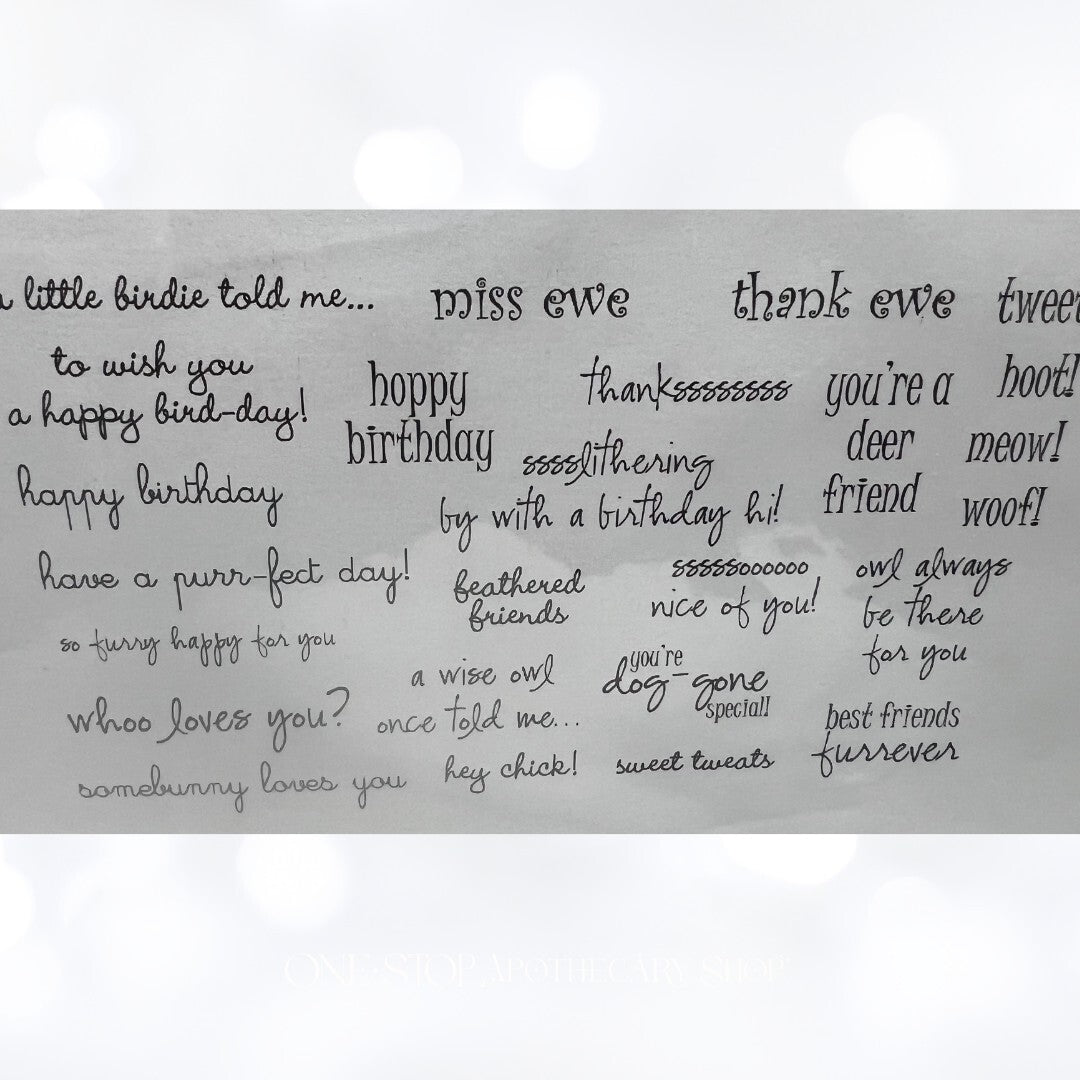 a little birdie told me...
to wish you
a happy bird-day!
happy birthday
have a purr-fect day!
so furry happy for you
whoo loves you?
somebunny loves you
miss ewe
hoppy
birthday
thankssssssss
sssslithering
by with a birthday hi!
feathered
friends
a wise owl
once told me...
hey chick!
thank ewe
you're a
deer
friend
sssssoooooo
nice of you!
you're
dog-gone
special!
sweet tweats
owl always
be there
for you
best friends
furrever
tweet
hoot!
meow!
woof!
ONE STOP APOTHECARY SHOP